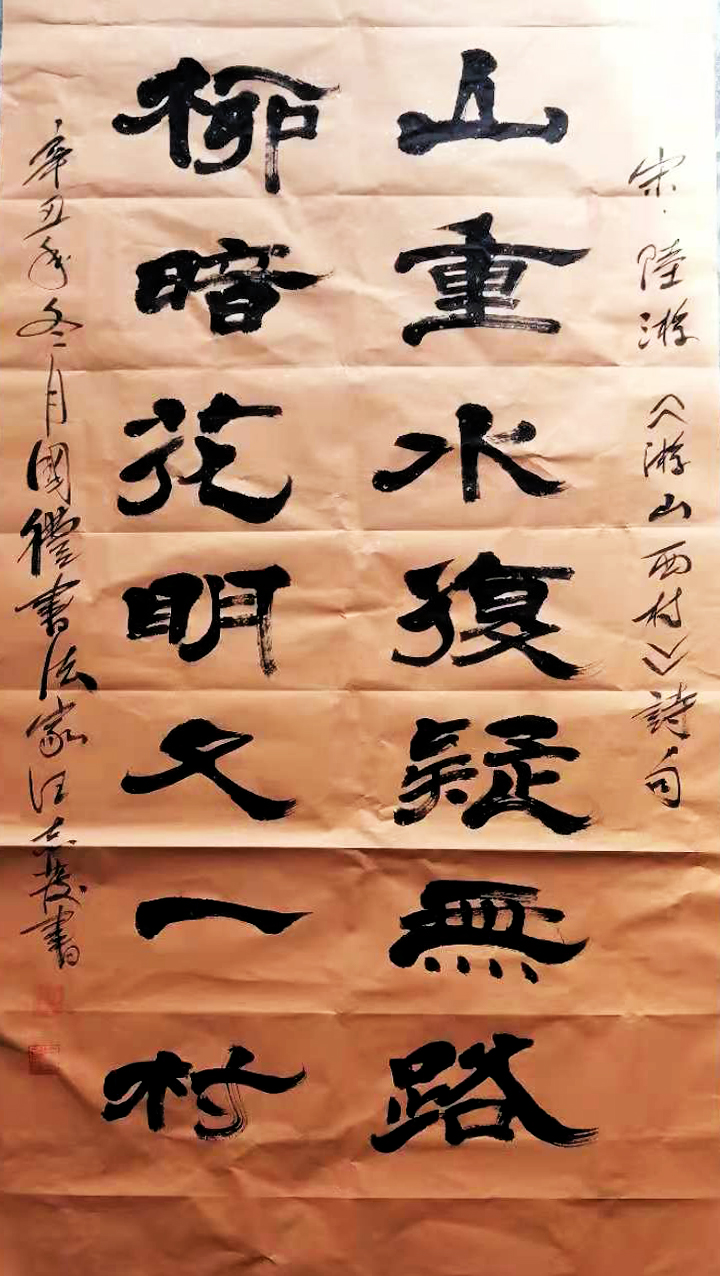 宋·陸游《游山西村》詩句
山重水復疑無路
柳暗花明又一村
辛丑年冬月國禮書法家汪志發書